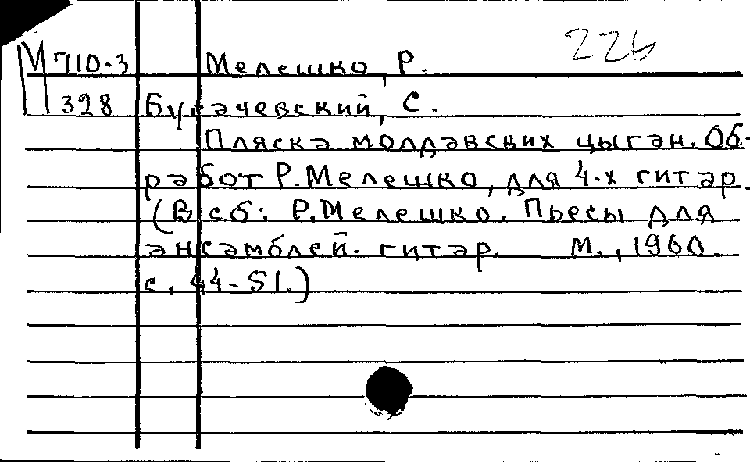 226
М 710-3 Мелешко, Р.
328 Булачевский, С.
Пляска молдавских цыган. Об-
работ Р. Мелешко, для 4-х гитар.
(В сб: Р. Мелешко. Пьесы для
ансамблей гитар. М., 1960.
с. 44-51.)